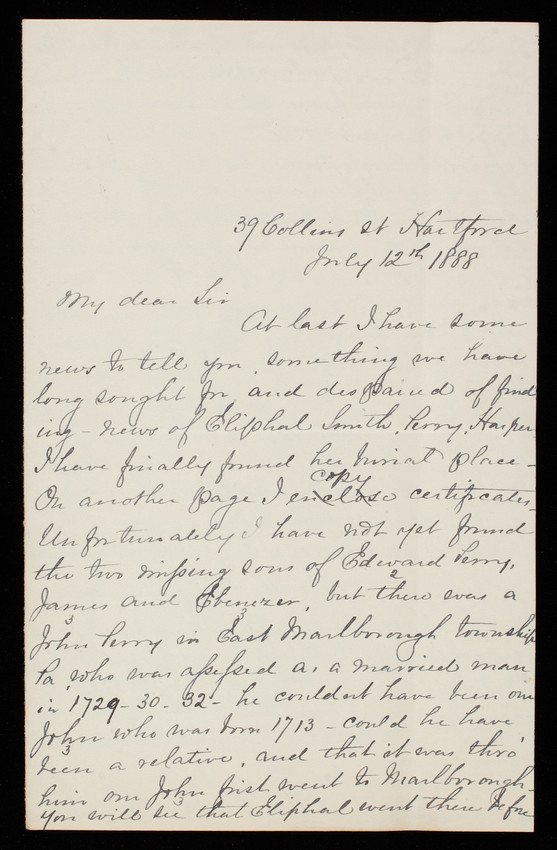 39 Collins st Hartford
July 12th 1888
My dear Sir
At last I have some
news to tell you, something we have
long sought for, and despaired of find
ing - news of Eliphal Smith, Perry, Harper.
I have finally found her burial place -
copy
On another page I enclose certificates.
Unfortunately I have not yet found
the two missing sons of Edward Perry,
2
James and Ebenezer, but there was a
3 3
John Perry in East Marlborough township
Pa, who was assessed as a married man
in 1729-30-32 - he couldnt have been our
John who was born 1713 - could he have
3
been a relative, and that it was thro'
him our John first went to Marlborough -
3
You will see that Eliphal went there